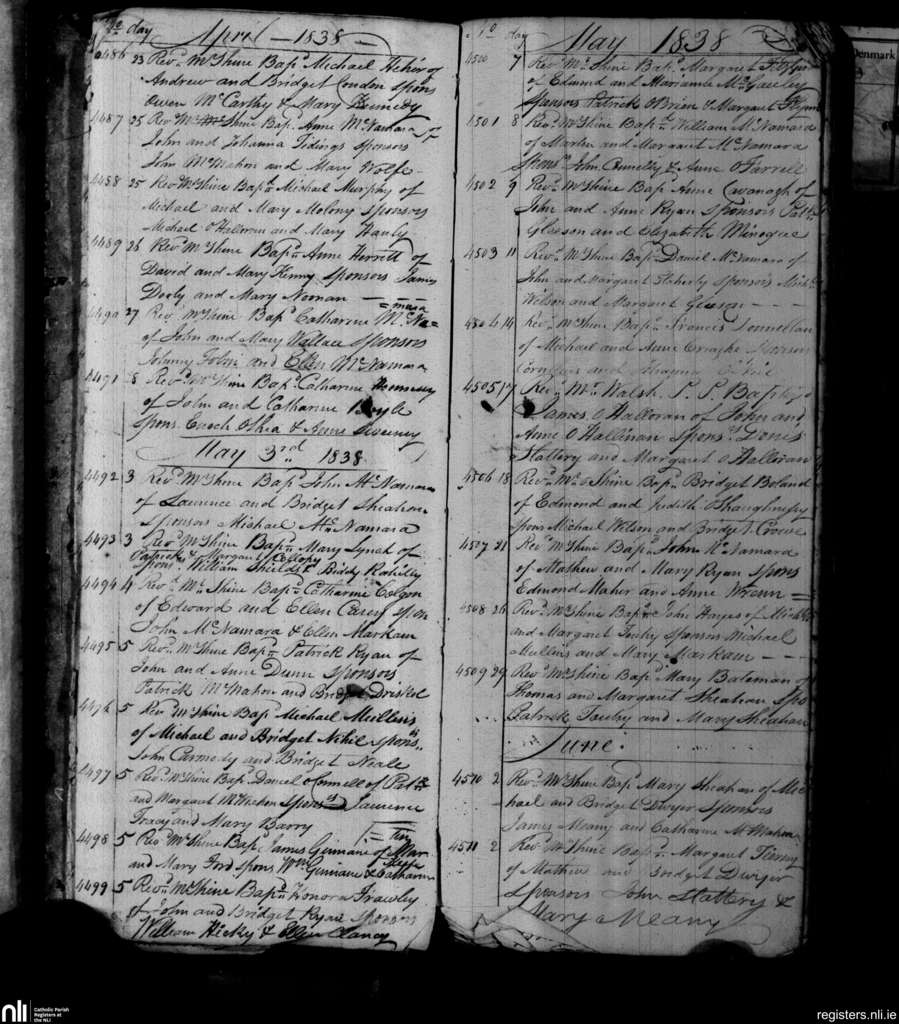 No day April 1838
4486 23 Revd. McShine Bapd Michael Hehir of
Andrew and Bridget Condon Spons
Owen McCarthy & Mary Kennedy
4487 25 Revd. McShine Bap. Anne McNamara of
John and Johanna Tidings Sponsors
John McMahon and Mary Wolfe
4488 25 Revd McShine Bapd Michael Murphy of
Michael and Mary Molony Sponsors
Michael OHalloran and Mary Hanly
4489 26 Revd McShine Bapd Anne Herrott of
David and Mary Kenny Sponsors James
Dooly and Mary Noonan
4490 27 Revd McShine Bapd Catharine McNa=
=mara
of John and Mary Wallace Sponsors
Johnny and Ellen McNamara
4491 28 Revd McShine Bapd Catharine Hennessy
of John and Catharine Boyle
Spons. Enoch OShea & Anne Sweeney
May 3rd 1838
4492 3 Revd McShine Bapd John McNamara
of Laurence and Bridget Sheahan
Sponsors Michael McNamara
4493 3 Revd McShine Bapd Mary Lynch of
Patrick & Margaret Kellopy
Spons. William Shields & Biddy Rahilly
4494 4 Revd Mc Shine Bapd Catharine Colgan
of Edward and Ellen Carey Spon
John McNamara & Ellen Markam
4495 5 Revd McShine Bapd Patrick Ryan of
John and Anne Dunn Sponsors
Patrick McMahon and Bridget Driskol
4496 5 Revd McShine Bapd Michael Mullins
of Michael and Bridget Nihil Spons
John Carmody and Bridget Neale
4497 5 Revd McShine Bap. Daniel OConnell of Patk
and Margaret McMahon Sponsrs Lawrence
Tracy and Mary Barry
4498 5 Revd McShine Bapd James Guinane of Mar
=tin
and Mary Ford Spons Wm Guinane & Catharine
4499 5 Revd McShine Bapd Honora Frawley
of John and Bridget Ryan Sponsors
William Hicky & Ellen Clancy
No day May 1838
4500 7 Revd McShine Bapd Margaret
of Edmund and Marianne McGauley
Sponsors Patrick OBrien & Margaret Flynn
4501 8 Revd McShine Bapd William McNamara
of Martin and Margaret McNamara
Spons John Connelly & Anne OFarrell
4502 9 Revd McShine Bap Anne Cavanogh of
John and Anne Ryan Sponsors Patk
Gleeson and Elizabeth Minogue
4503 11 Revd McShine Bapd Daniel McNamara of
John and Margaret Fleherty Sponsors Michl
Wilson and Margaret Gleeson
4504 14 Revd McShine Bapd Francis Donnellan
of Michael and Anne Sponsors
Cornelius and
4505 17 Revd Mr Walsh P.P. Baptizd
James OHalloran of John and
Anne OHallinan Sponsrs Denis
Slattery and Margaret OHalloran
4506 18 Revd McShine Bapd Bridget Boland
of Edmond and Judith OShaughnessy
Spons Michael Wilson and Bridget Crowe
4507 21 Revd McShine Bapd John McNamara
of Mathew and Mary Ryan Spons
Edmond Maher and Anne Wrenn
4508 26 Revd McShine Bapd John Hayes of Michl
and Margaret Touhy Sponsors Michael
Mullins and Mary Markam
4509 29 Revd McShine Bapd Mary Bateman of
Thomas and Margaret Sheahan Spo
Patrick Touhy and Mary Sheahan
June
4510 2 Revd McShine Bapd Mary Sheahan of Mic
hael and Bridget Dwyer Sponsors
James Meany and Catharine McMahon
4511 2 Revd McShine Bapd Margaret Tierny
of Mathew and Bridget Dwyer
Sponsors John Slattery &
Mary Meany
Denmark
nli Catholic Parish
Registers at
the NLI
registers.nli.ie